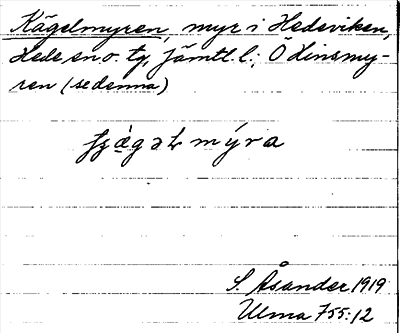 Kägelmyren, myr i Hedeviken,
Hede sn o. tg, Jämtl. l.; Ödinsmy-
ren (se denna)
mýra
S. Åsander 1919
Ulma 755:12